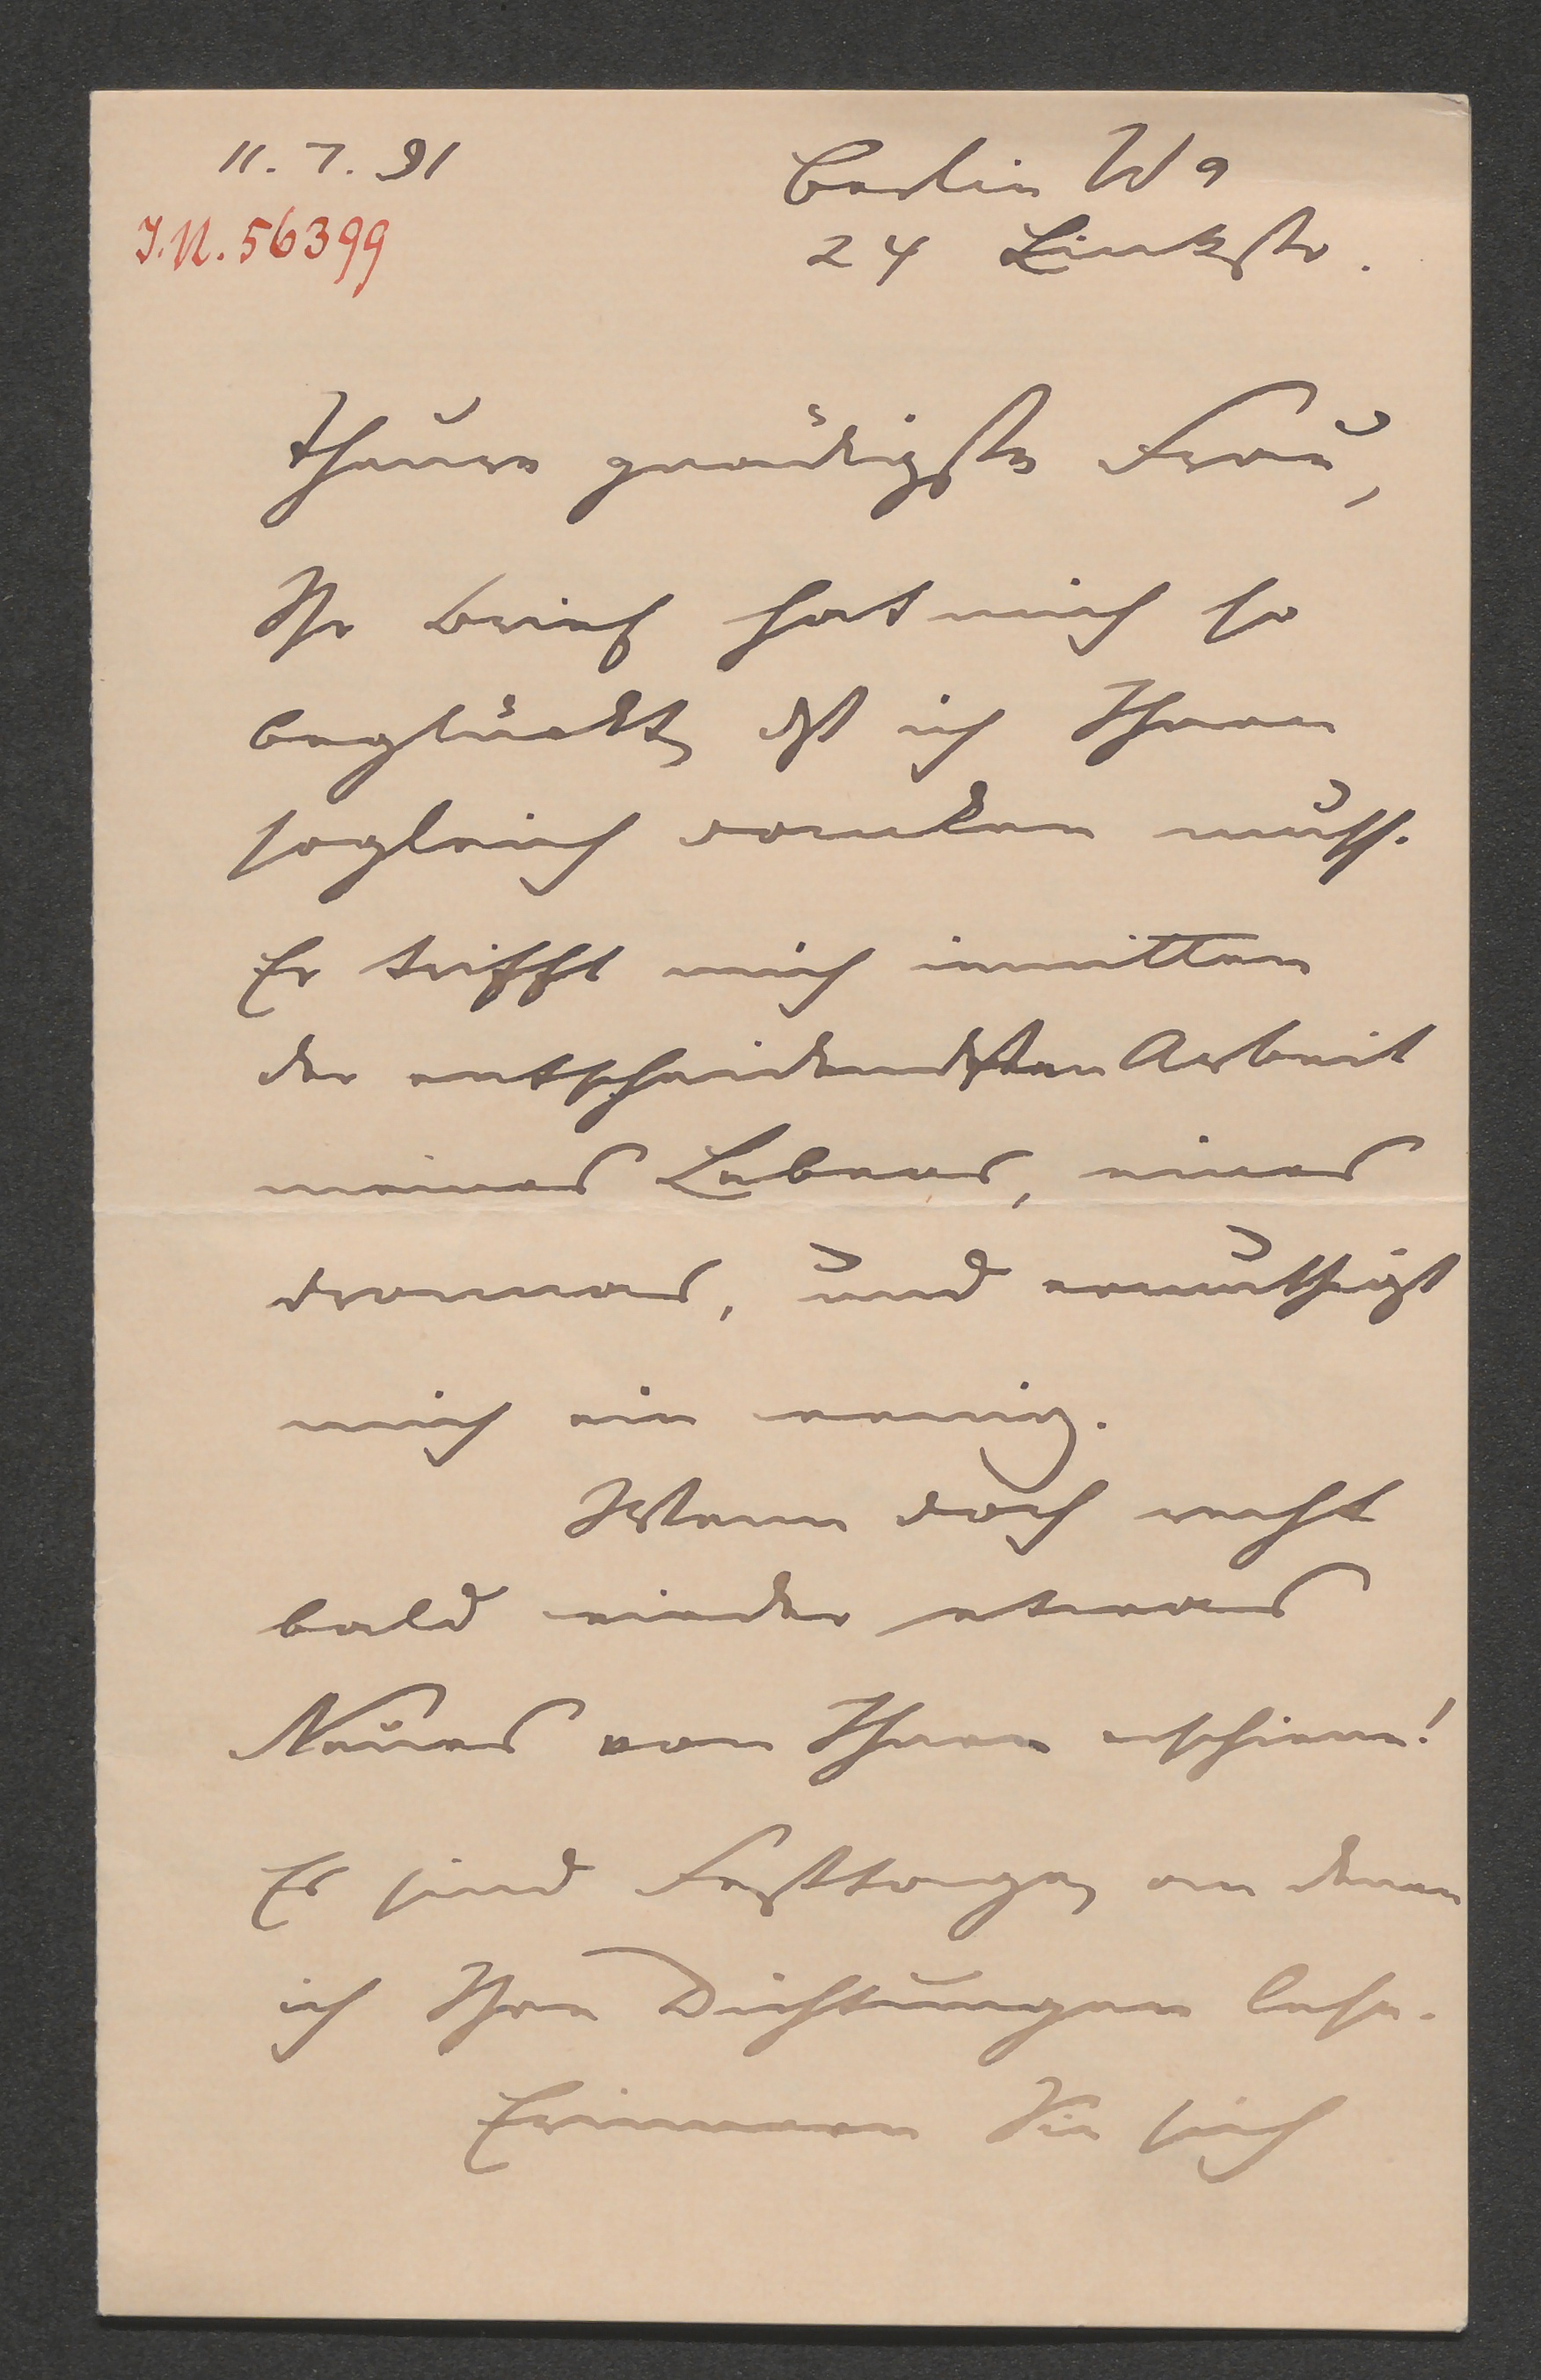 11. 7. 91
Berlin W 9
J.N. 56399
24 Linkstr.
Theure gnädigste Frau,
Ihr Brief hat mich so
beglückt, dß ich Ihnen
sogleich danken muss.
Er trifft mich inmitten
der entscheidendsten Arbeit
meines Lebens, eines
Dramas, und ermuthigt
mich ein wenig.
Wenn doch recht
bald wieder etwas
Neues von Ihnen erschiene!
Es sind Festtage, an denen
ich Ihre Dichtungen lese.
Erinnern Sie sich